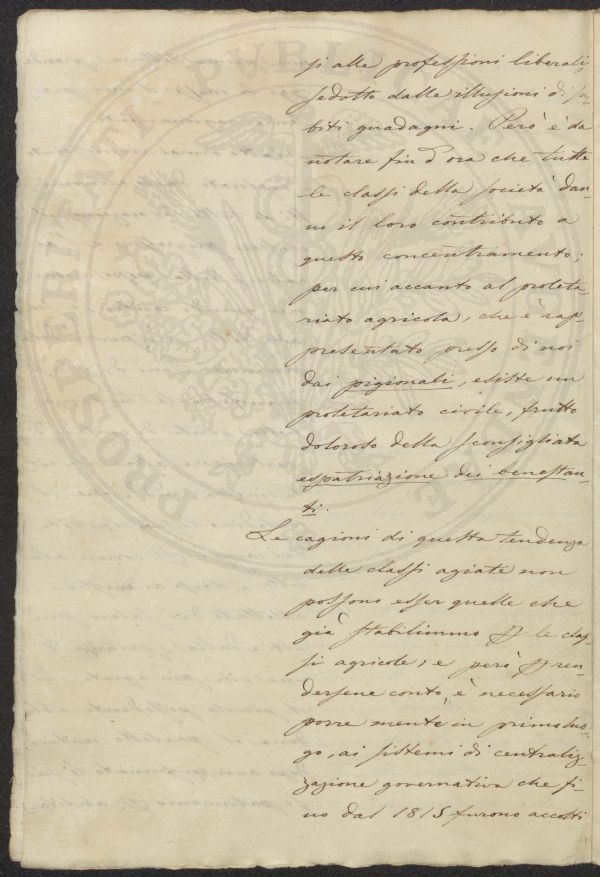 si alle professioni liberali,
sedotto dalle illusioni di su-
biti guadagni. Però è da
notare fin d'ora che tutte
le classi della società dan-
no il loro contributo a
questo concentramento;
per cui accanto al proleta-
riato agricola, che è rap-
presentato presso di noi
dai pigionali, esiste un
proletariato civile, frutto
doloroso della sconsigliata
espatriazione dei benestan-
ti.
Le cagioni di questa tendenza
delle classi agiate non
possono esser quelle che
già stabilimmo p le clas-
si agricole; e però p ren-
dersene conto, è necessario
porre mente in primo luo-
go, ai sistemi di centraliz-
zazione governativa che fi-
no dal 1815 furono accolti
PROSPERITATI PUBLICAE